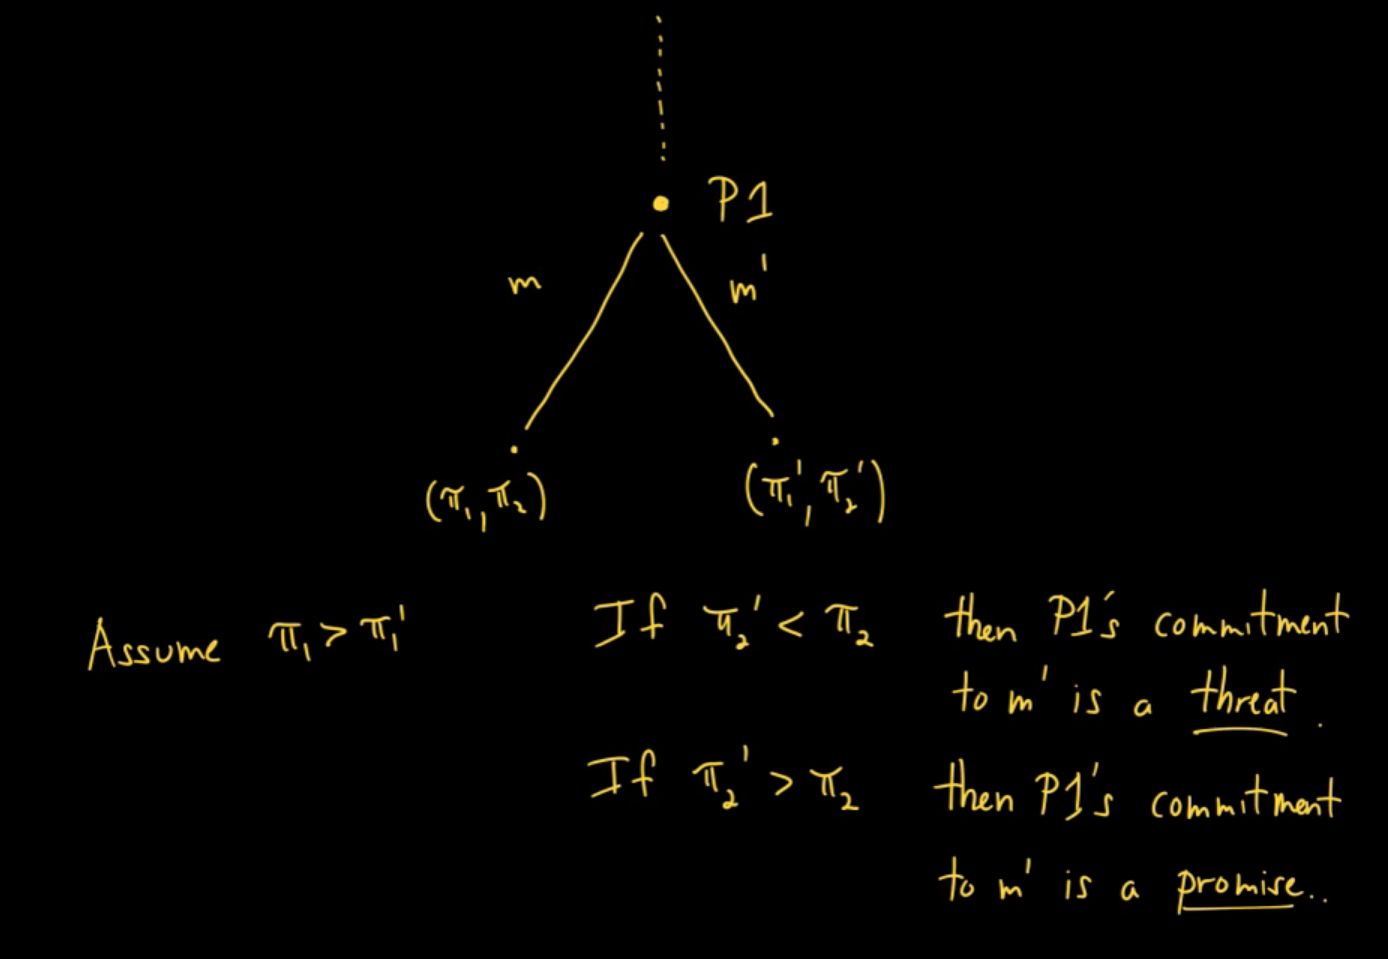 P1
m m'
(π₁, π₂) (π₁', π₂')
Assume π₁ > π₁' If π₂' < π₂ then P1's commitment
to m' is a threat.
If π₂' > π₂ then P1's commitment
to m' is a promise..